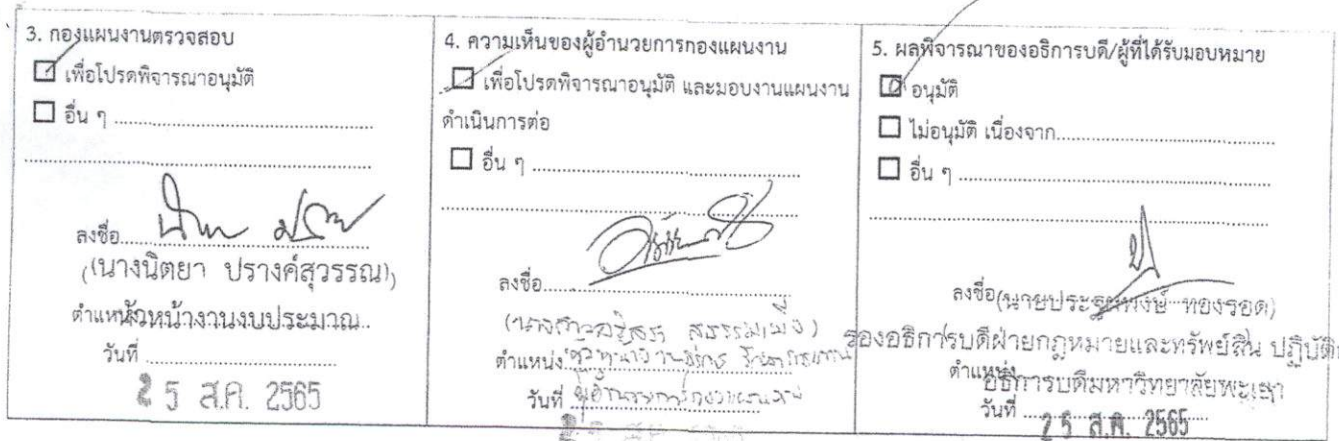 3. กองแผนงานตรวจสอบ
เพื่อโปรดพิจารณาอนุมัติ
อื่น ๆ
ลงชื่อ
(นางนิตยา ปรางค์สุวรรณ)
ตำแหน่ง หัวหน้างานงบประมาณ
วันที่
25 ส.ค. 2565
4. ความเห็นของผู้อำนวยการกองแผนงาน
เพื่อโปรดพิจารณาอนุมัติ และมอบงานแผนงาน
ดำเนินการต่อ
อื่น ๆ
ลงชื่อ
ตำแหน่ง
วันที่ ผู้อำนวยการกองแผนงาน
5. ผลพิจารณาของอธิการบดี/ผู้ที่ได้รับมอบหมาย
อนุมัติ
ไม่อนุมัติ เนื่องจาก
อื่น ๆ
ลงชื่อ ทองรอด)
รองอธิการบดีฝ่ายกฎหมายและทรัพย์สิน
ตำแหน่ง อธิการบดีมหาวิทยาลัยพะเยา
วันที่
25 ส.ค. 2565